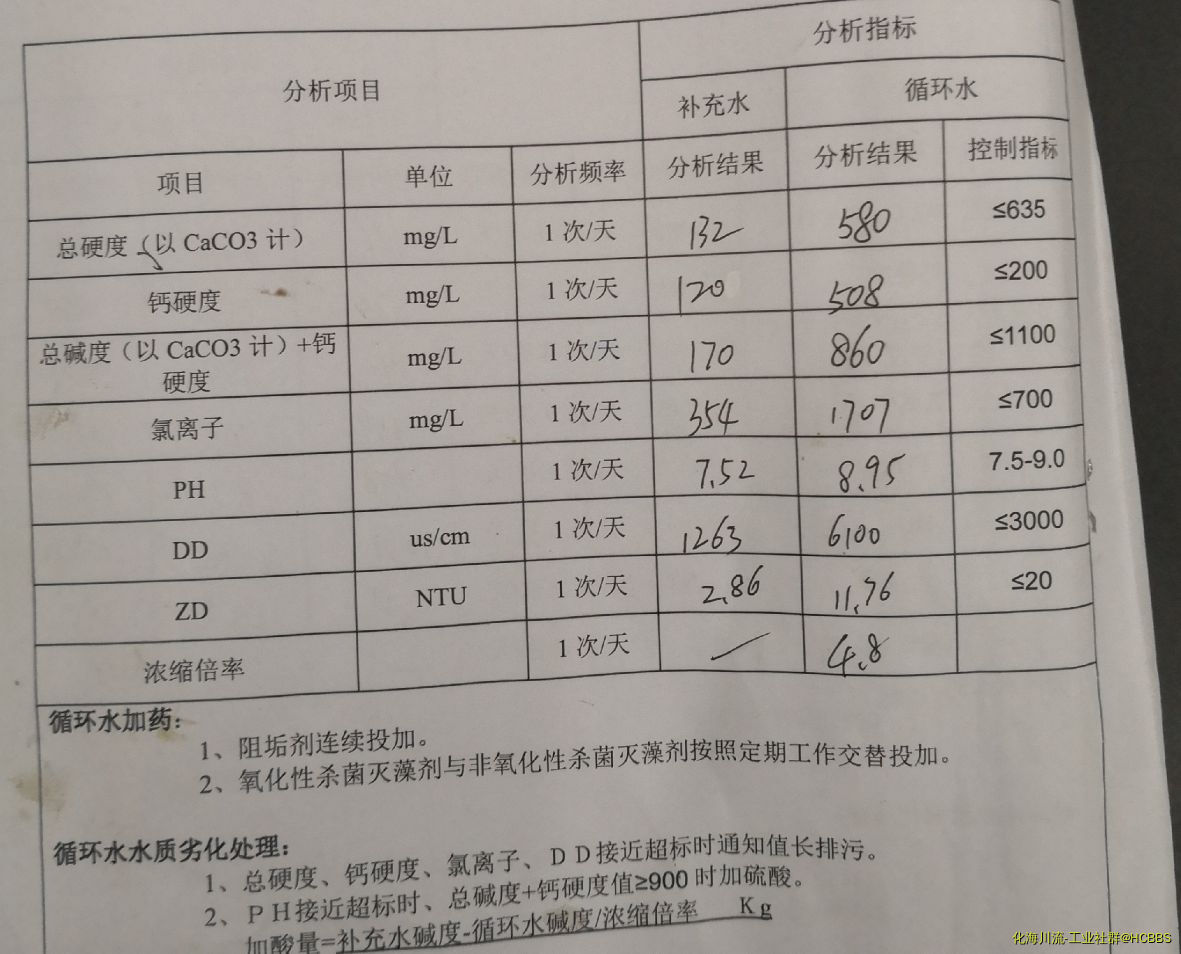 分析项目 分析指标
补充水 循环水
项目 单位 分析频率 分析结果 分析结果 控制指标
总硬度（以 CaCO3 计） mg/L 1 次/天 132 580 ≤635
钙硬度 mg/L 1 次/天 120 508 ≤200
总碱度（以 CaCO3 计）+钙
硬度 mg/L 1 次/天 170 860 ≤1100
氯离子 mg/L 1 次/天 354 1707 ≤700
PH 1 次/天 7.52 8.95 7.5-9.0
DD us/cm 1 次/天 1263 6100 ≤3000
ZD NTU 1 次/天 2.86 11.76 ≤20
浓缩倍率 1 次/天 — 4.8
循环水加药：
1、阻垢剂连续投加。
2、氧化性杀菌灭藻剂与非氧化性杀菌灭藻剂按照定期工作交替投加。
循环水水质劣化处理：
1、总硬度、钙硬度、氯离子、ＤＤ接近超标时通知值长排污。
2、ＰＨ接近超标时、总碱度+钙硬度值≥900 时加硫酸。
加酸量=补充水碱度-循环水碱度/浓缩倍率 Kg
化海川流-工业社群@HCBBS